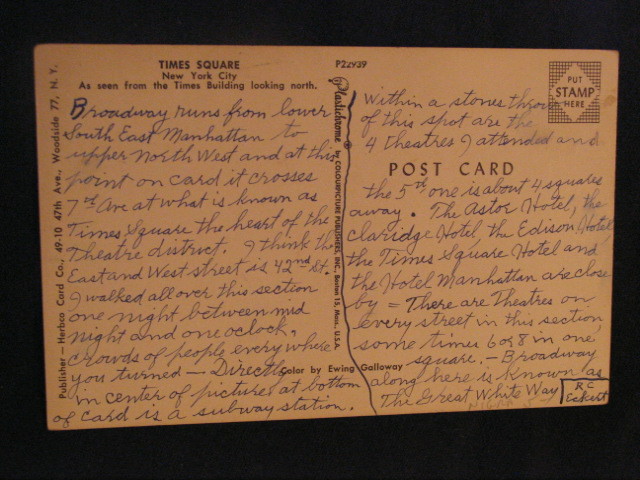 TIMES SQUARE
New York City
As seen from the Times Building looking north.
P22939
PUT
STAMP
HERE
Publisher — Herbco Card Co., 49-10 47th Ave., Woodside 77, N. Y.
Plastichrome by COLOURPICTURE PUBLISHERS, INC., Boston 15, Mass., U.S.A.
POST CARD
Color by Ewing Galloway
Broadway runs from lower
South East Manhattan to
upper North West and at this
point on card it crosses
7th Ave at what is known as
Times Square the heart of the
Theatre district. I think the
East and West street is 42nd St.
I walked all over this section
one night between mid
night and one oclock.
Crowds of people every where
you turned — Directly
in center of picture at bottom
of card is a subway station.
Within a stones throw
of this spot are the
4 theatres I attended and
the 5th one is about 4 squares
away. The Astor Hotel, the
Claridge Hotel, the Edison Hotel
the Times Square Hotel and
the Hotel Manhattan are close
by = There are Theatres on
every street in this section,
some times 6 or 8 in one
square. — Broadway
along here is known as
The Great White Way
R C
Eckert